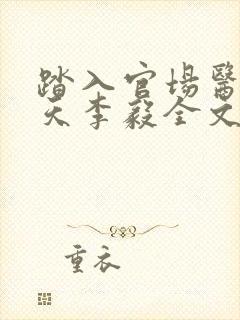 踏入官場醫
天李毅全文
重衣